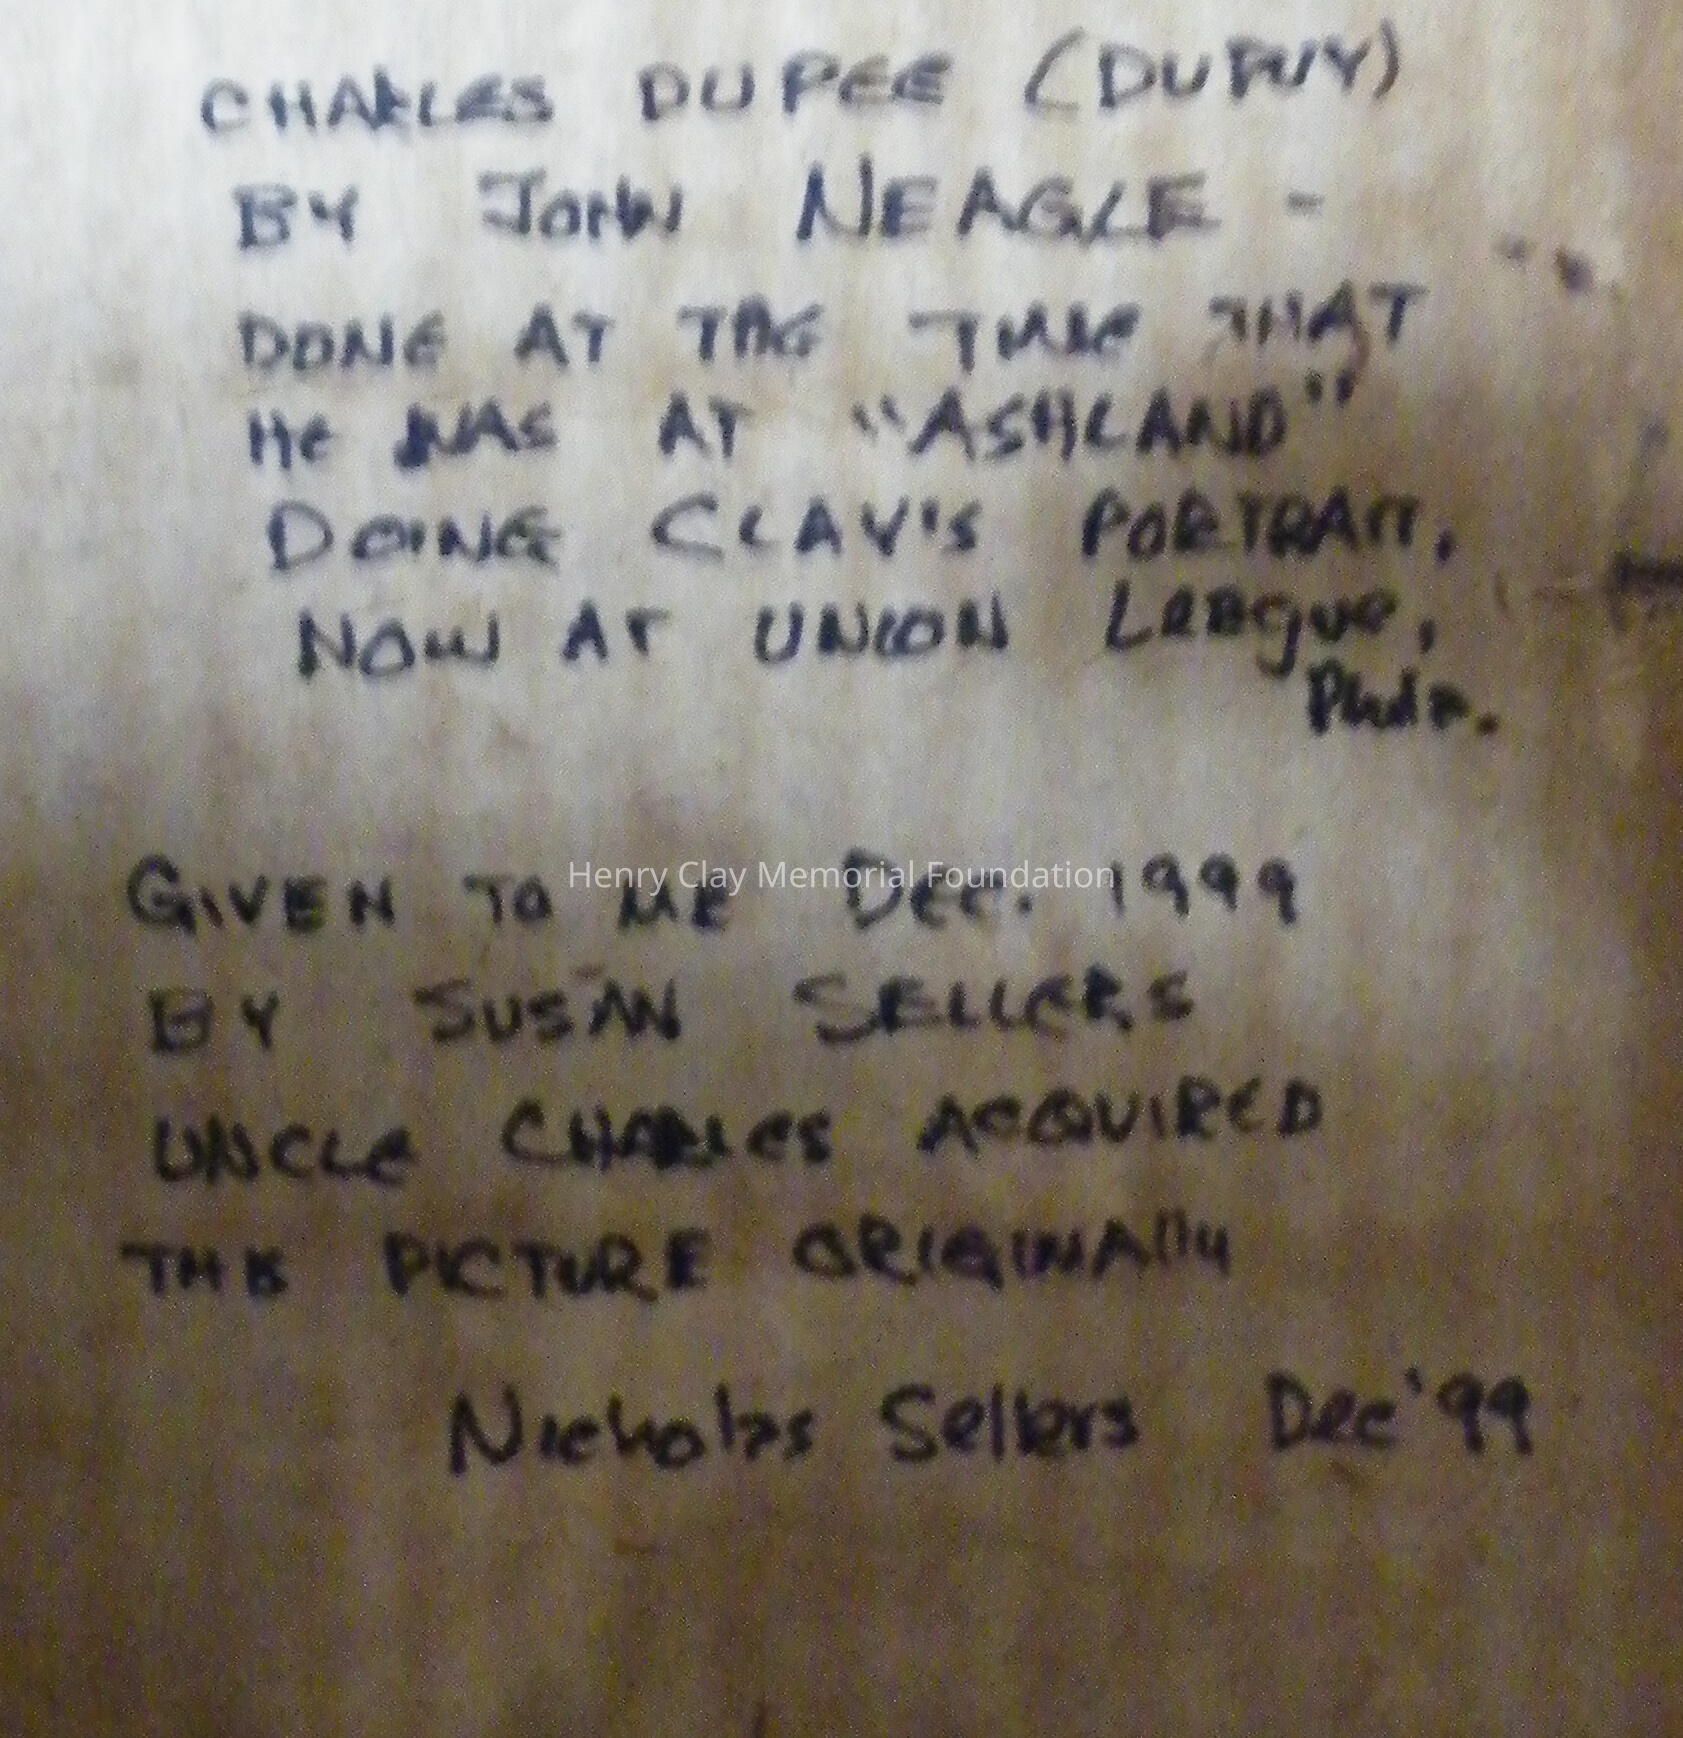 CHARLES DUPEE (DUPUY)
BY JOHN NEAGLE -
DONE AT THE TIME THAT
HE WAS AT "ASHLAND"
DOING CLAY'S PORTRAIT,
NOW AT UNION League,
Phila.
GIVEN TO ME DEC. 1999
Henry Clay Memorial Foundation
BY SUSAN SELLERS
UNCLE CHARLES ACQUIRED
THIS PICTURE ORIGINAlly
Nicholas Sellers Dec '99